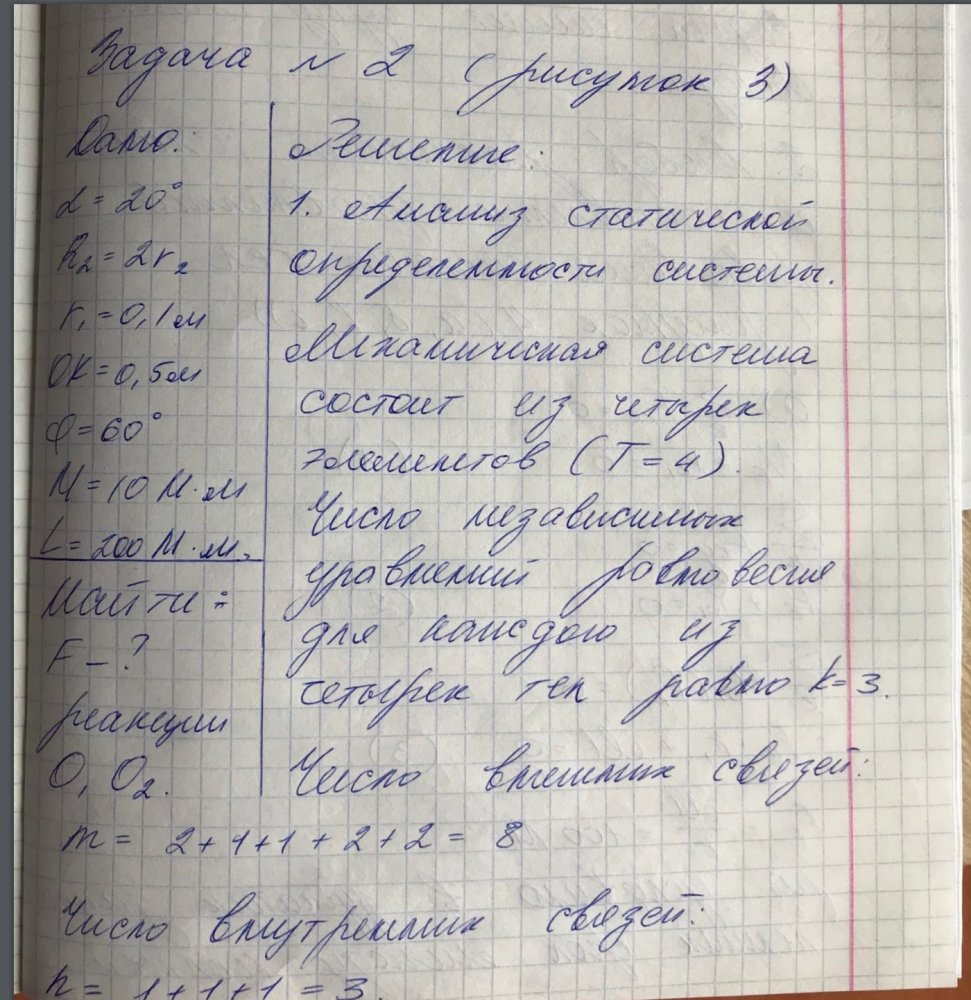 Задача № 2 (рисунок 3)
Дано:
α = 20°
R₂ = 2r₂
r₁ = 0,1 м
OK = 0,5 м
φ = 60°
M = 10 Н·м
L = 200 Н·м.
Найти:
F – ?
реакции
O, O₂.
Решение:
1. Анализ статической
определенности системы.
Механическая система
состоит из четырех
элементов (T = 4).
Число независимых
уравнений равновесия
для каждого из
четырех тел равно k = 3.
Число внешних связей:
m = 2 + 1 + 1 + 2 + 2 = 8
Число внутренних связей:
n = 1 + 1 + 1 = 3.